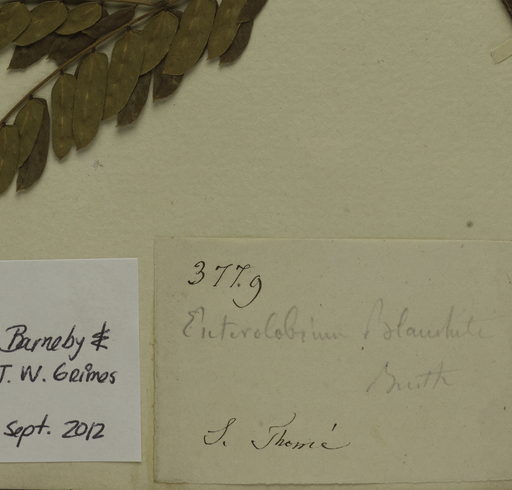 Barneby &
J. W. Grimes
Sept. 2012
377.9
Enterolobium Blancheti
Benth
S. Thomé